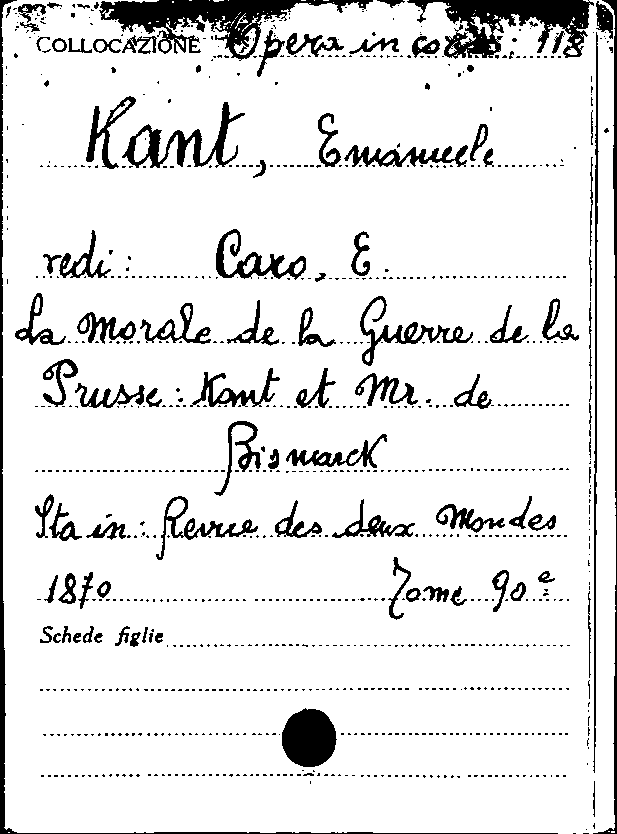 COLLOCAZIONE Opera in corso: 118
Kant, Emanuele
vedi: Caro, E.
La Morale de la Guerre de la
Prusse: Kant et Mr. de
Bismarck
Sta in: Revue des deux Mondes
1870 Tome 90e
Schede figlie